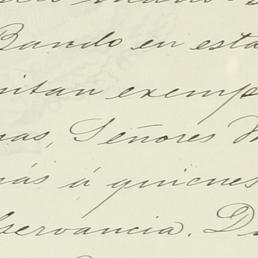 Bando en esta
mitan exemp
nas, Señores
más á quienes
bservancia. D